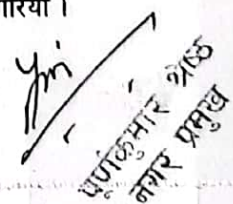 गरिया ।
पूर्णकुमार श्रेष्ठ
नगर प्रमुख